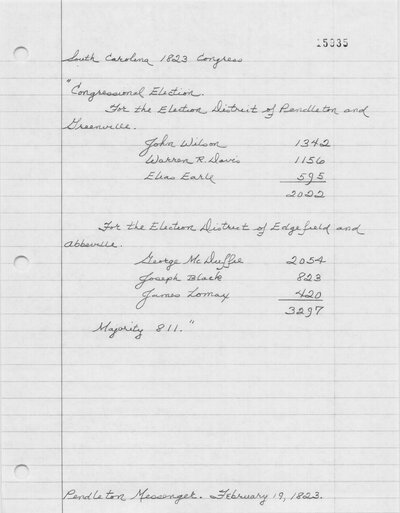 15335
South Carolina 1823 Congress
"Congressional Election.
For the Election District of Pendleton and
Greenville.
John Wilson 1342
Warren R. Davis 1156
Elias Earle 595
2022
For the Election District of Edgefield and
Abbeville.
George McDuffie 2054
Joseph Black 823
James Lomax 420
3297
Majority 811."
Pendleton Messenger. February 19, 1823.